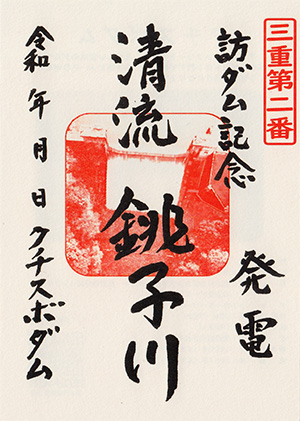 三重第二番
訪ダム記念
発電
清流 銚子川
令和 年 月 日 クチスボダム